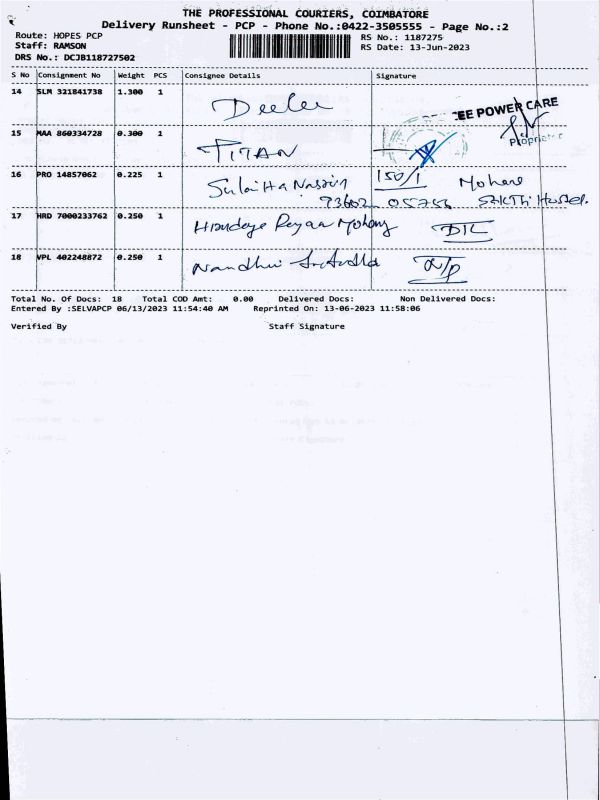 THE PROFESSIONAL COURIERS, COIMBATORE
Delivery Runsheet - PCP - Phone No.:0422-3505555 - Page No.:2
Route: HOPES PCP
RS No.: 1187275
Staff: RAMSON
RS Date: 13-Jun-2023
DRS No.: DCJB118727502
S No Consignment No Weight PCS Consignee Details Signature
14 SLM 321841738 1.300 1
EE POWER CARE
15 MAA 860334728 0.300 1
TITAN
Proprietor
16 PRO 14857062 0.225 1
150/1
73602 05756
17 HRD 7000233762 0.250 1
18 VPL 402248872 0.250 1
Total No. Of Docs: 18 Total COD Amt: 0.00 Delivered Docs: Non Delivered Docs:
Entered By :SELVAPCP 06/13/2023 11:54:40 AM Reprinted On: 13-06-2023 11:58:06
Verified By Staff Signature